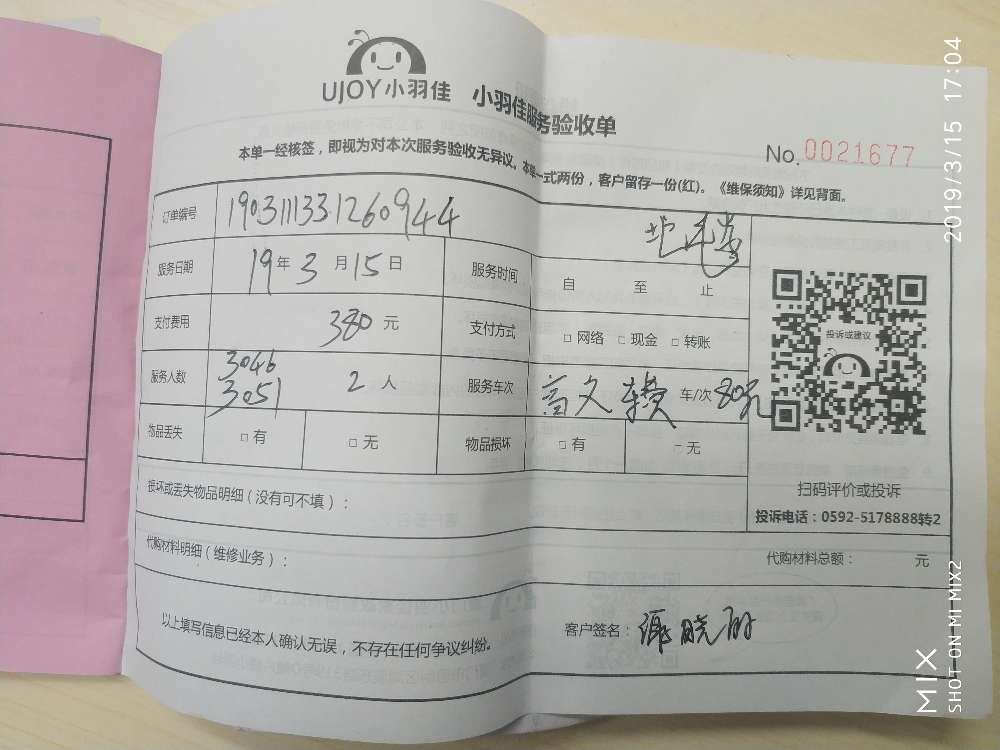 UJOY小羽佳 小羽佳服务验收单
No. 0021677
本单一经核签，即视为对本次服务验收无异议。本单一式两份，客户留存一份(红)。《维保须知》详见背面。
订单编号 1903111331260944
服务日期 19年3月15日 服务时间 自 至 止
支付费用 380元 支付方式 □ 网络 □ 现金 □ 转账
服务人数 3046 3051 2人 服务车次 车/次 80元
物品丢失 □ 有 □ 无 物品损坏 □ 有 □ 无
投诉或建议
扫码评价或投诉
投诉电话：0592-5178888转2
损坏或丢失物品明细（没有可不填）：
代购材料明细（维修业务）： 代购材料总额： 元
以上填写信息已经本人确认无误，不存在任何争议纠纷。 客户签名：
2019/3/15 17:04
MIX
SHOT ON MI MIX2